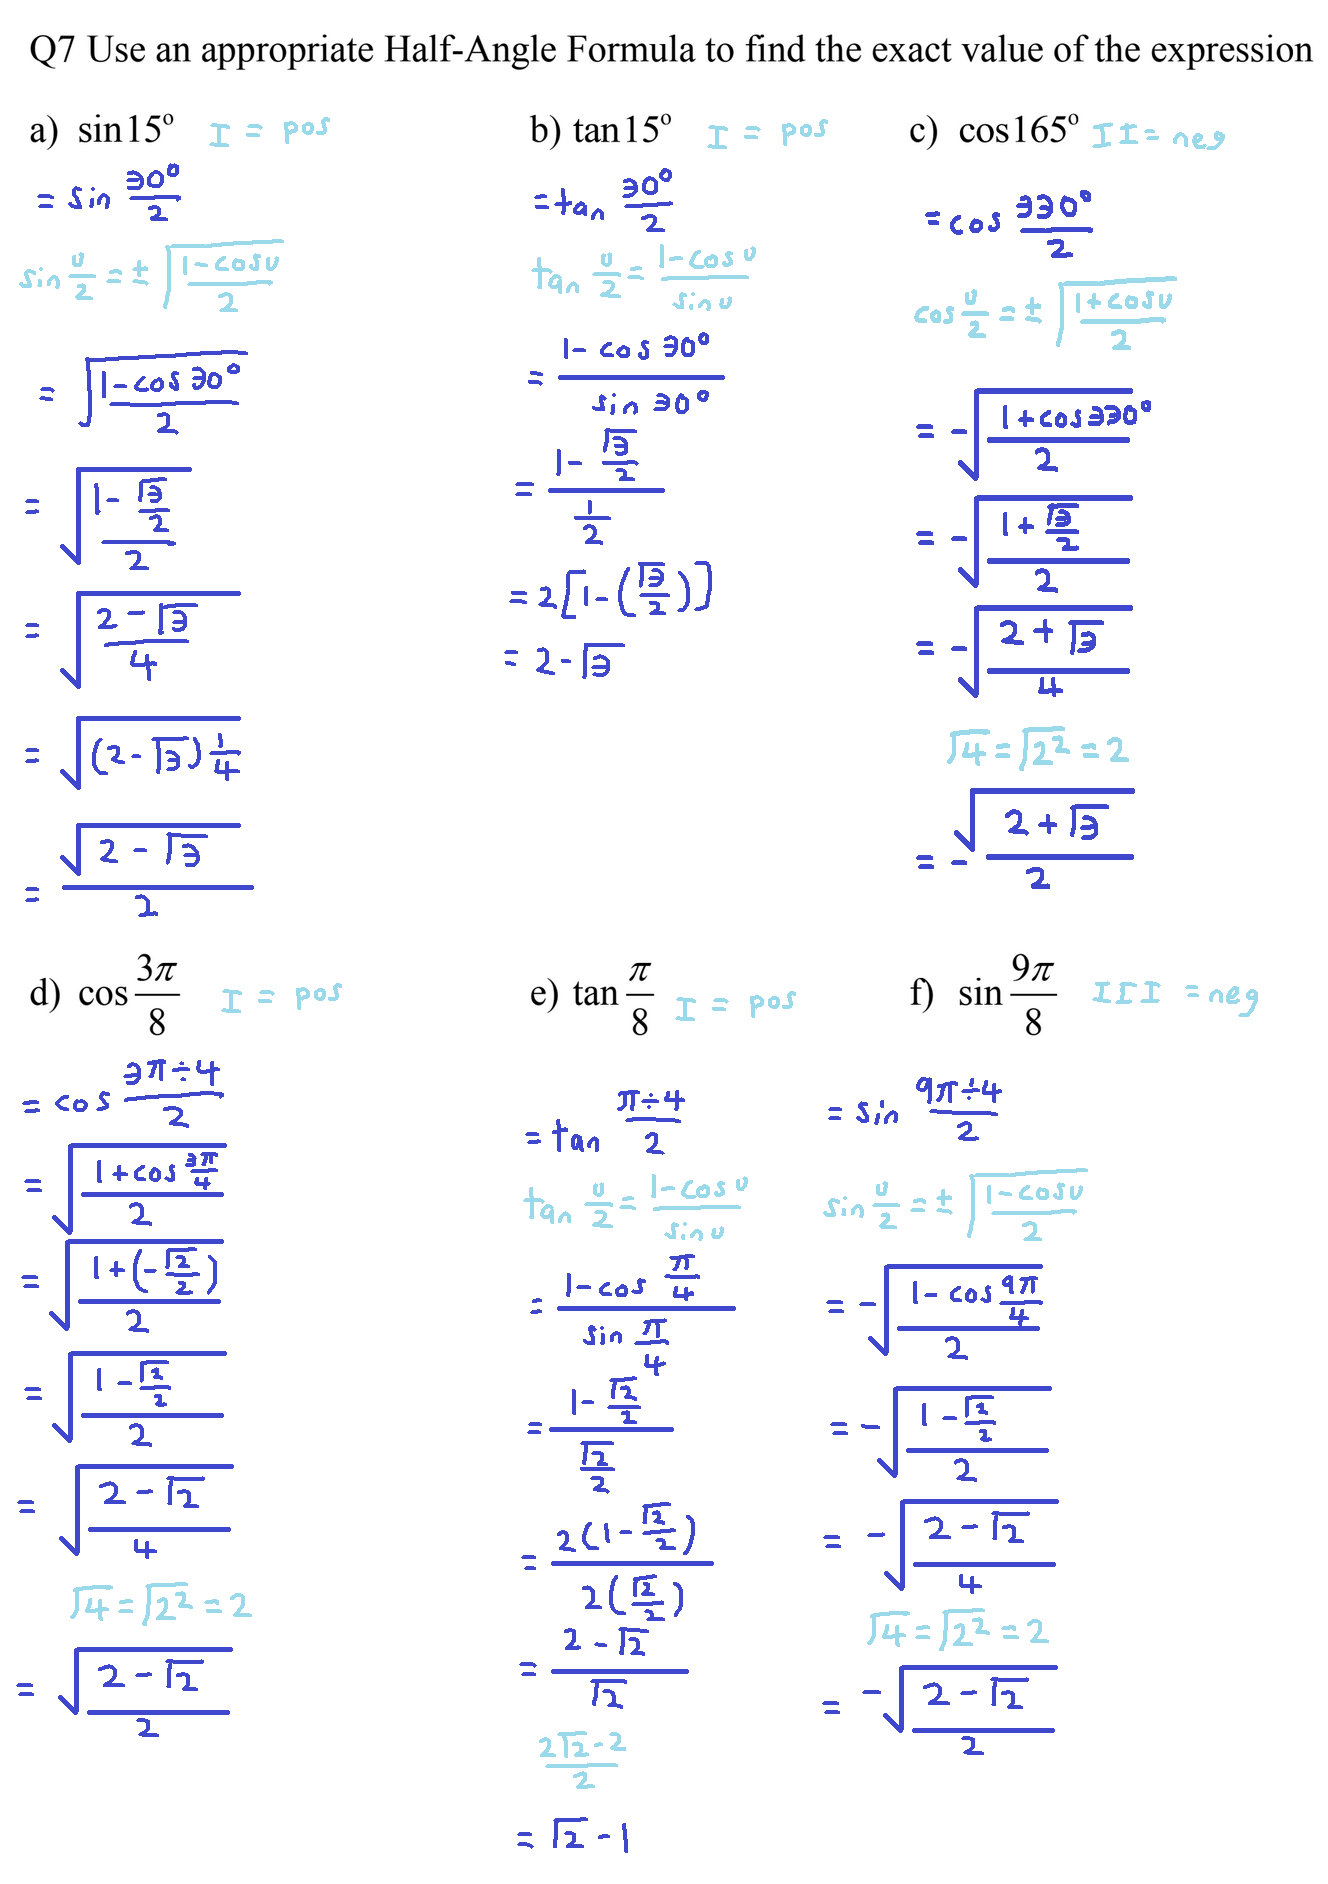 Q7 Use an appropriate Half-Angle Formula to find the exact value of the expression
a) sin15° I = pos
= sin 30°/2
sin u/2 = ± √((1-cosu)/2)
= √((1-cos30°)/2)
= √((1-√3/2)/2)
= √((2-√3)/4)
= √((2-√3)1/4)
= √(2-√3)/2
b) tan15° I = pos
= tan 30°/2
tan u/2 = (1-cosu)/(sinu)
= (1-cos30°)/(sin30°)
= (1-√3/2)/(1/2)
= 2[1-(√3/2)]
= 2-√3
c) cos165° II = neg
= cos 330°/2
cos u/2 = ± √((1+cosu)/2)
= -√((1+cos330°)/2)
= -√((1+√3/2)/2)
= -√((2+√3)/4)
√4 = √2² = 2
= -√(2+√3)/2
d) cos 3π/8 I = pos
= cos (3π÷4)/2
= √((1+cos 3π/4)/2)
= √((1+(-√2/2))/2)
= √((1-√2/2)/2)
= √((2-√2)/4)
√4 = √2² = 2
= √((2-√2)/2)
e) tan π/8 I = pos
= tan (π÷4)/2
tan u/2 = (1-cosu)/(sinu)
= (1-cos π/4)/(sin π/4)
= (1-√2/2)/(√2/2)
= 2(1-√2/2)/2(√2/2)
= (2-√2)/√2
(2√2-2)/2
= √2-1
f) sin 9π/8 III = neg
= sin (9π÷4)/2
sin u/2 = ± √((1-cosu)/2)
= -√((1-cos 9π/4)/2)
= -√((1-√2/2)/2)
= -√((2-√2)/4)
√4 = √2² = 2
= -√((2-√2)/2)